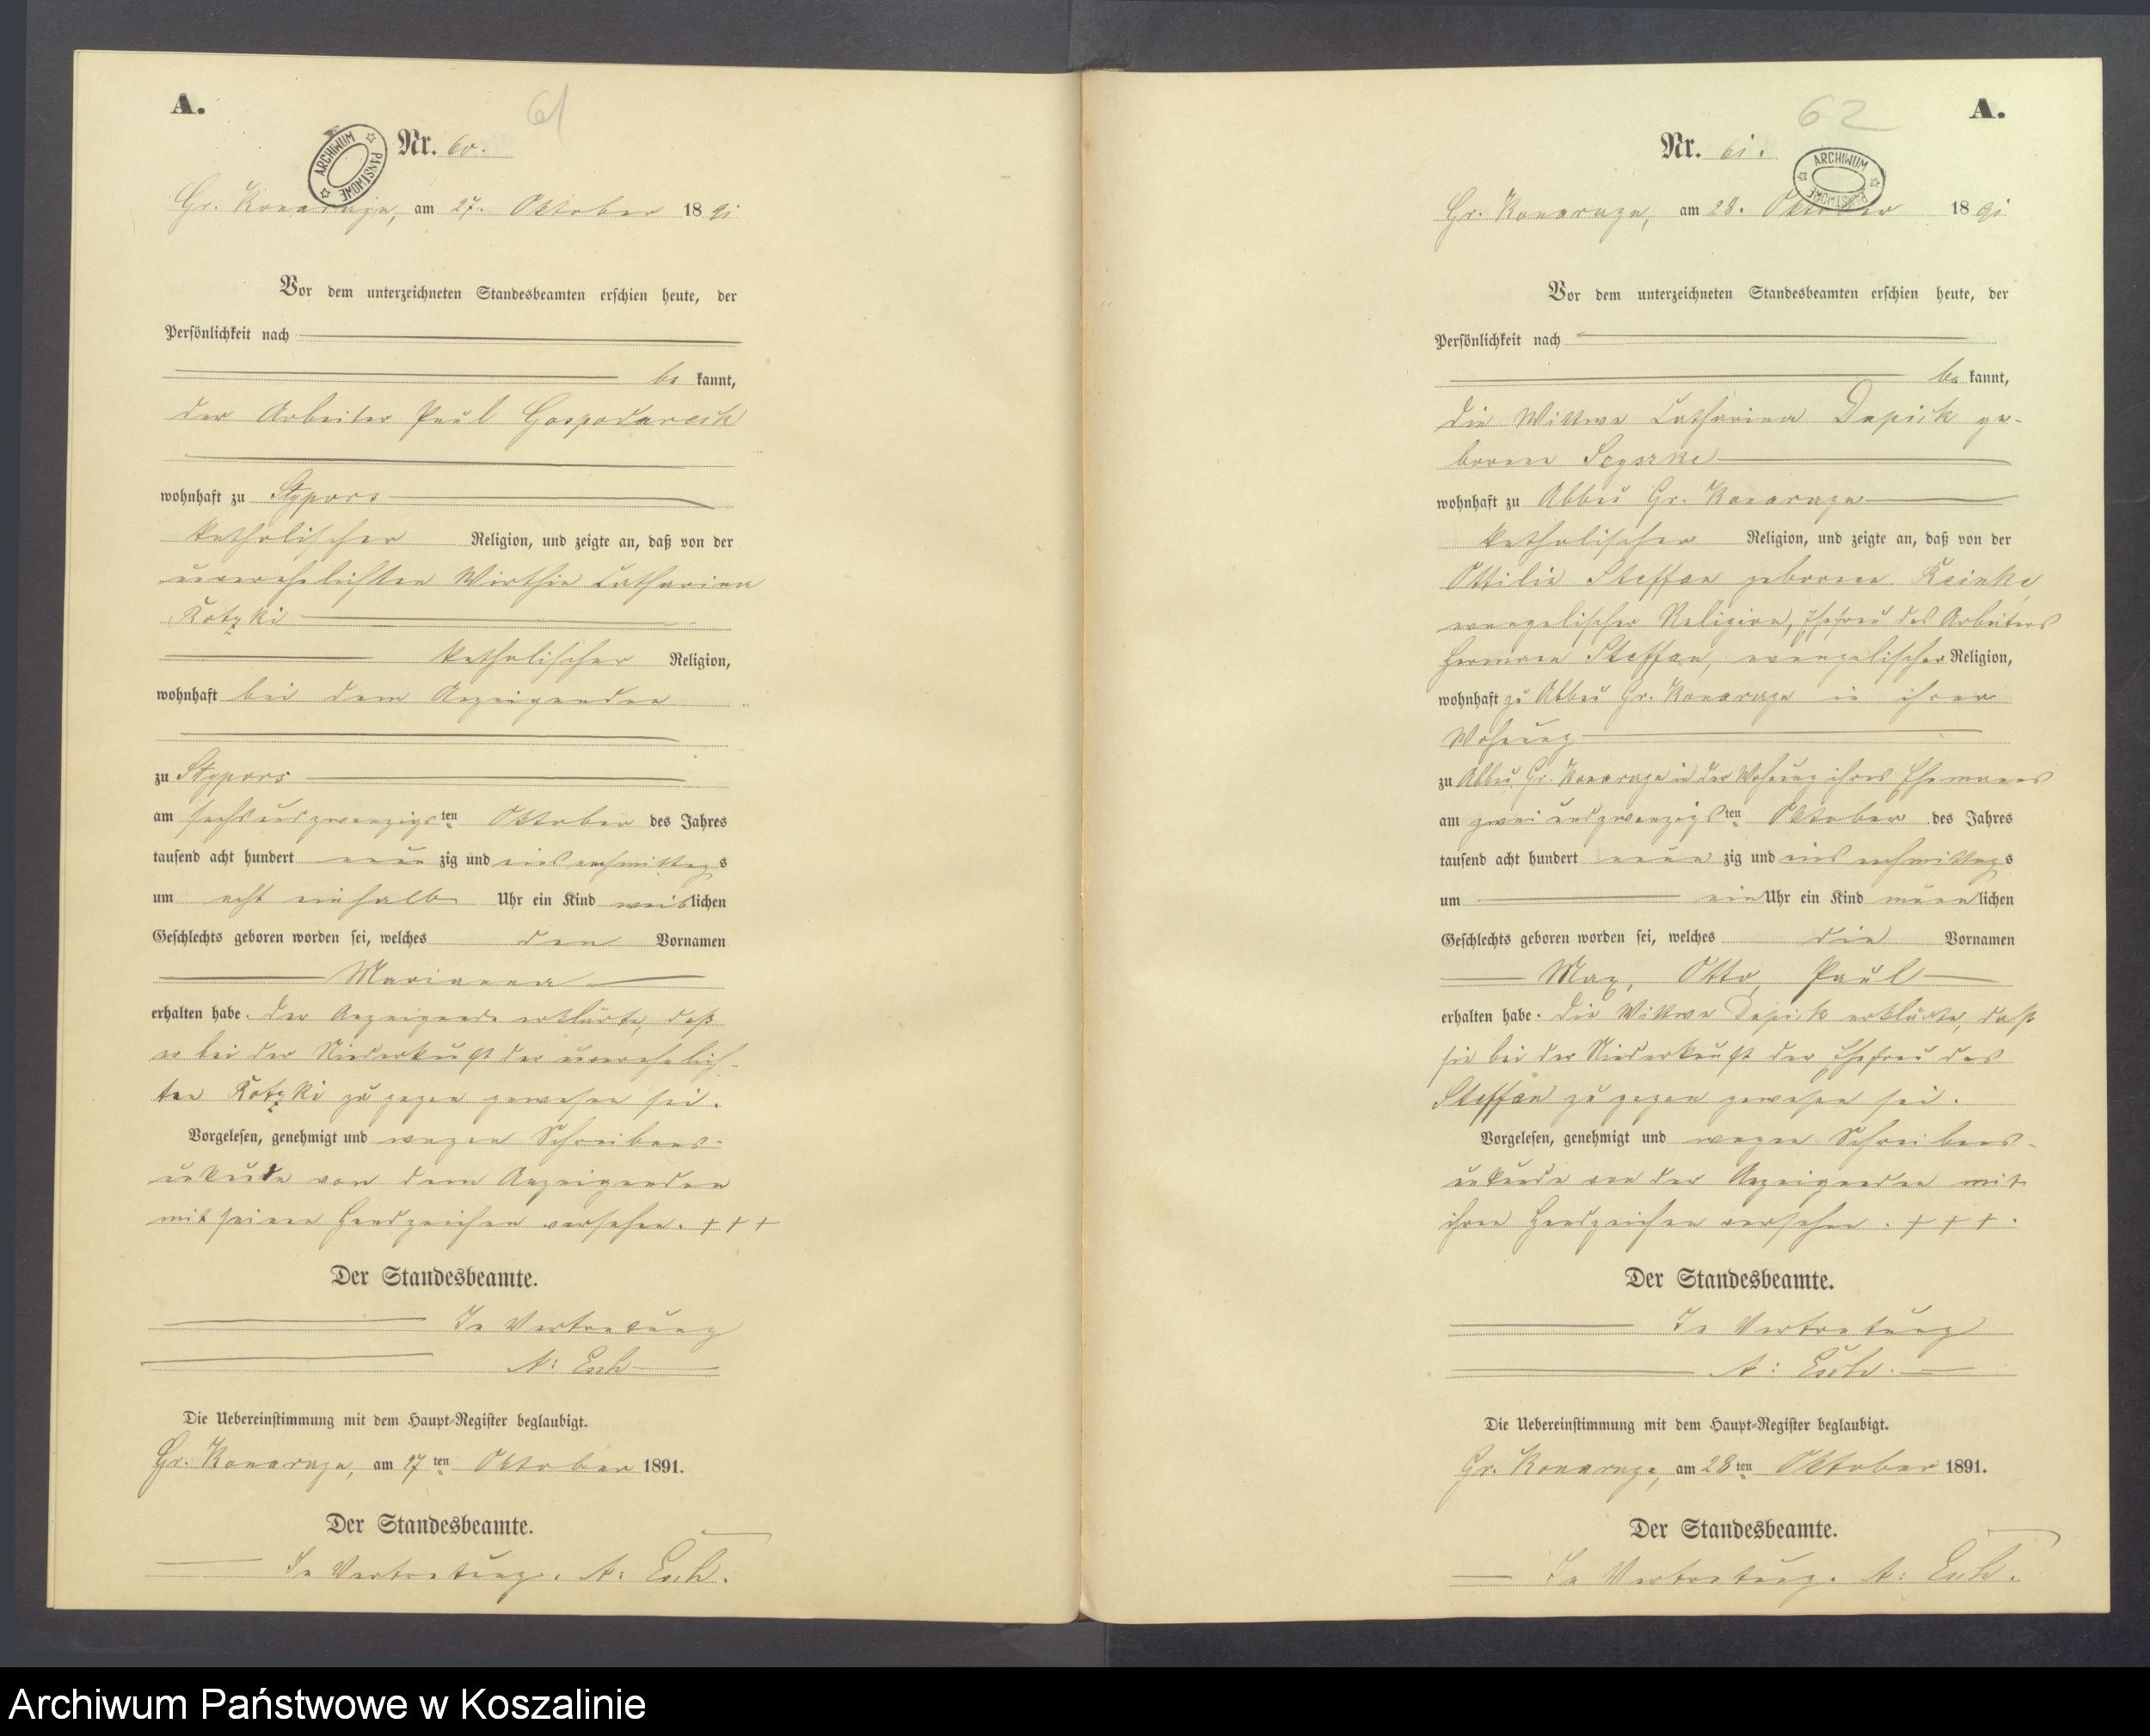 A.
61
Nr. 60.
ARCHIWUM PAŃSTWOWE
Gr. Konarczyn, am 27. Oktober 1891
Vor dem unterzeichneten Standesbeamten erschien heute, der
Persönlichkeit nach
be kannt,
der Arbeiter Paul Gospodareck
wohnhaft zu Stypors
katholischer Religion, und zeigte an, daß von der
unverehelichten Wirthin Catharina
Kotzki
katholischer Religion,
wohnhaft bei dem Anzeigenden
zu Stypors
am sechsundzwanzigsten Oktober des Jahres
tausend acht hundert neunzig und eins nachmittags
um acht einhalb Uhr ein Kind weiblichen
Geschlechts geboren worden sei, welches den Vornamen
Marianna
erhalten habe. Der Anzeigende erklärte, daß
er bei der Niederkunft der unverehelich-
ten Kotzki zugegen gewesen sei.
Vorgelesen, genehmigt und wegen Schreibens-
unkunde von dem Anzeigenden
mit seinen Handzeichen versehen. +++
Der Standesbeamte.
In Vertretung
A: Esch
Die Uebereinstimmung mit dem Haupt-Register beglaubigt.
Gr. Konarczyn, am 27ten Oktober 1891.
Der Standesbeamte.
In Vertretung. A: Esch.
A.
62
Nr. 61.
ARCHIWUM PAŃSTWOWE
Gr. Konarczyn, am 28. Oktober 1891
Vor dem unterzeichneten Standesbeamten erschien heute, der
Persönlichkeit nach
be kannt,
die Wittwe Catharina Depick ge-
borene
wohnhaft zu Abbau Gr. Konarczyn
katholischer Religion, und zeigte an, daß von der
Ottilie Steffan geborene Reinke,
evangelischer Religion, Ehefrau des Arbeiters
Hermann Steffan, evangelischer Religion,
wohnhaft zu Abbau Gr. Konarczyn in ihrer
Wohnung
zu Abbau Gr. Konarczyn in der Wohnung ihres Ehemannes
am zweiundzwanzigsten Oktober des Jahres
tausend acht hundert neunzig und eins nachmittags
um ein Uhr ein Kind männlichen
Geschlechts geboren worden sei, welches die Vornamen
Max, Otto, Paul
erhalten habe. Die Wittwe Depick erklärte, daß
sie bei der Niederkunft der Ehefrau des
Steffan zugegen gewesen sei.
Vorgelesen, genehmigt und wegen Schreibens-
unkunde von der Anzeigenden mit
ihren Handzeichen versehen. +++.
Der Standesbeamte.
In Vertretung
A: Esch.
Die Uebereinstimmung mit dem Haupt-Register beglaubigt.
Gr. Konarczyn, am 28ten Oktober 1891.
Der Standesbeamte.
In Vertretung. A: Esch.
Archiwum Państwowe w Koszalinie